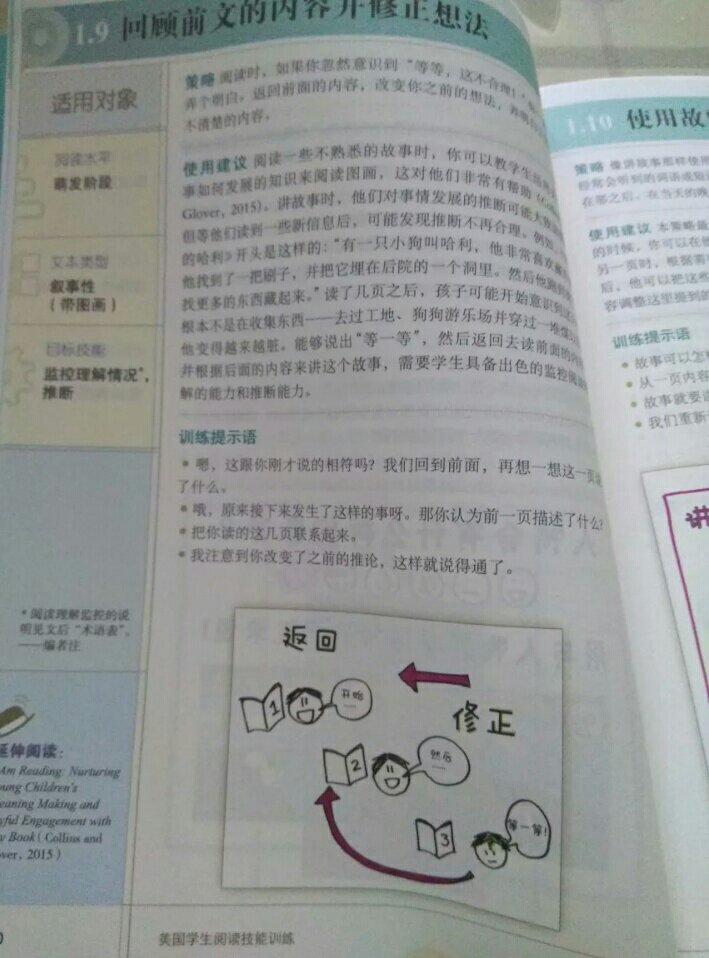 1.9 回顾前文的内容并修正想法
适用对象
阅读水平
萌发阶段
文本类型
叙事性
（带图画）
目标技能
监控理解情况*,
推断
*阅读理解监控的说
明见文后“术语表”。
——编者注
延伸阅读：
Am Reading: Nurturing
Children's
Meaning Making and
Engagement with
Book (Collins and
2015)
策略 阅读时，如果你忽然意识到“等等，这不合理！”
弄个明白。返回前面的内容，改变你之前的想法，弄明白
不清楚的内容。
使用建议 阅读一些不熟悉的故事时，你可以教学生
事如何发展的知识来阅读图画，这对他们非常有帮助
Glover, 2015)。讲故事时，他们对事情发展的推断可能大
但等他们读到一些新信息后，可能发现推断不再合理。例如
的哈利》开头是这样的：“有一只小狗叫哈利，他非常喜欢
他找到了一把刷子，并把它埋在后院的一个洞里。然后他跑
找更多的东西藏起来。”读了几页之后，孩子可能开始意识到
根本不是在收集东西——去过工地、狗狗游乐场并穿过一堆
他变得越来越脏。能够说出“等一等”，然后返回去读前面的内容
并根据后面的内容来讲这个故事，需要学生具备出色的监控阅读
解的能力和推断能力。
训练提示语
• 嗯，这跟你刚才说的相符吗？我们回到前面，再想一想这一页
了什么。
• 哦，原来接下来发生了这样的事呀。那你认为前一页描述了什么？
• 把你读的这几页联系起来。
• 我注意到你改变了之前的推论，这样就说得通了。
返回
修正
1 开始……
2 然后……
3 等一等！
美国学生阅读技能训练
1.10 使用故
策略 像讲故事那样使用
经常会听到的词语或短
在那之后、在当天的晚
使用建议 本策略最
的时候，你可以在他
另一页时，根据需
后，他可以把这些
容调整这里提到的
训练提示语
• 故事可以怎
• 从一页内容
• 故事就要
• 我们重新
讲